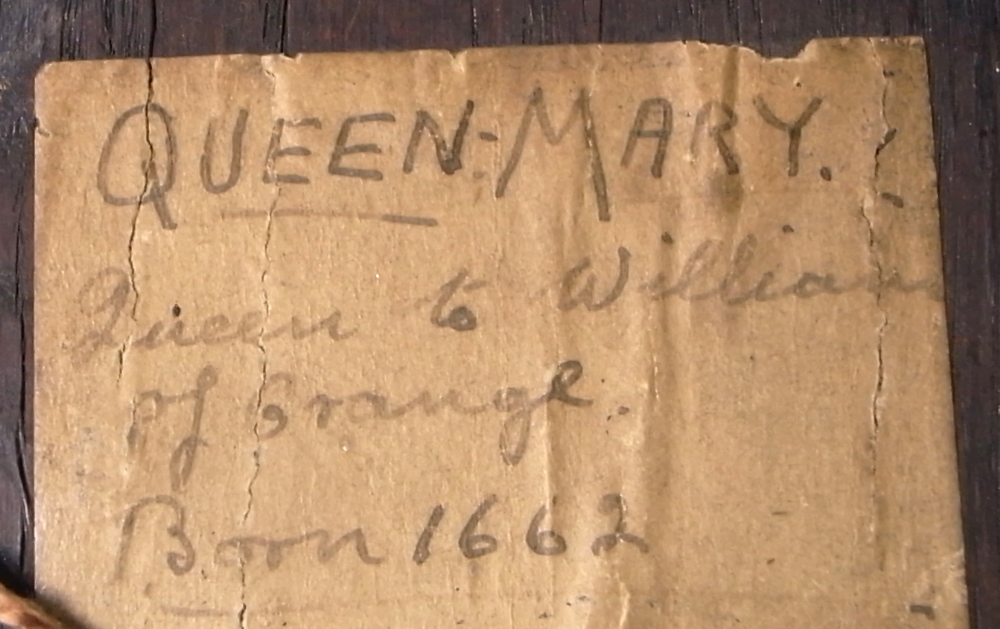 QUEEN-MARY.
Queen to William
of Orange.
Born 1662